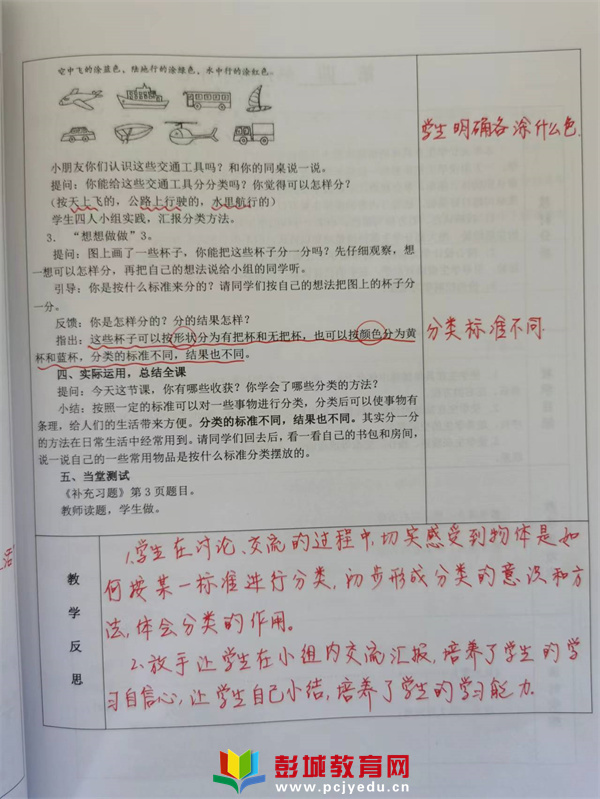 空中飞的涂蓝色、陆地行的涂绿色、水中行的涂红色。
学生明确各涂什么色.
小朋友你们认识这些交通工具吗？和你的同桌说一说。
提问：你能给这些交通工具分分类吗？你觉得可以怎样分？
（按天上飞的，公路上行驶的，水里航行的）
学生四人小组实践，汇报分类方法。
3. “想想做做”3。
提问：图上画了一些杯子，你能把这些杯子分一分吗？先仔细观察，想
一想可以怎样分，再把自己的想法说给小组的同学听。
引导：你是按什么标准来分的？请同学们按自己的想法把图上的杯子分
一分。
反馈：你是怎样分的？分的结果怎样？
分类标准不同.
指出：这些杯子可以按形状分为有把杯和无把杯，也可以按颜色分为黄
杯和蓝杯，分类的标准不同，结果也不同。
四、实际运用，总结全课
提问：今天这节课，你有哪些收获？你学会了哪些分类的方法？
小结：按照一定的标准可以对一些事物进行分类，分类后可以使事物有
条理，给人们的生活带来方便。分类的标准不同，结果也不同。其实分一分
的方法在日常生活中经常用到。请同学们回去后，看一看自己的书包和房间，
说一说自己的一些常用物品是按什么标准分类摆放的。
五、当堂测试
《补充习题》第 3 页题目。
教师读题，学生做。
教学反思
1.学生在讨论、交流的过程中,切实感受到物体是如
何按某一标准进行分类,初步形成分类的意识和方
法,体会分类的作用。
2.放手让学生在小组内交流汇报,培养了学生的学
习自信心,让学生自己小结,培养了学生的学习能力.
活
彭城教育网
www.pcjyedu.cn